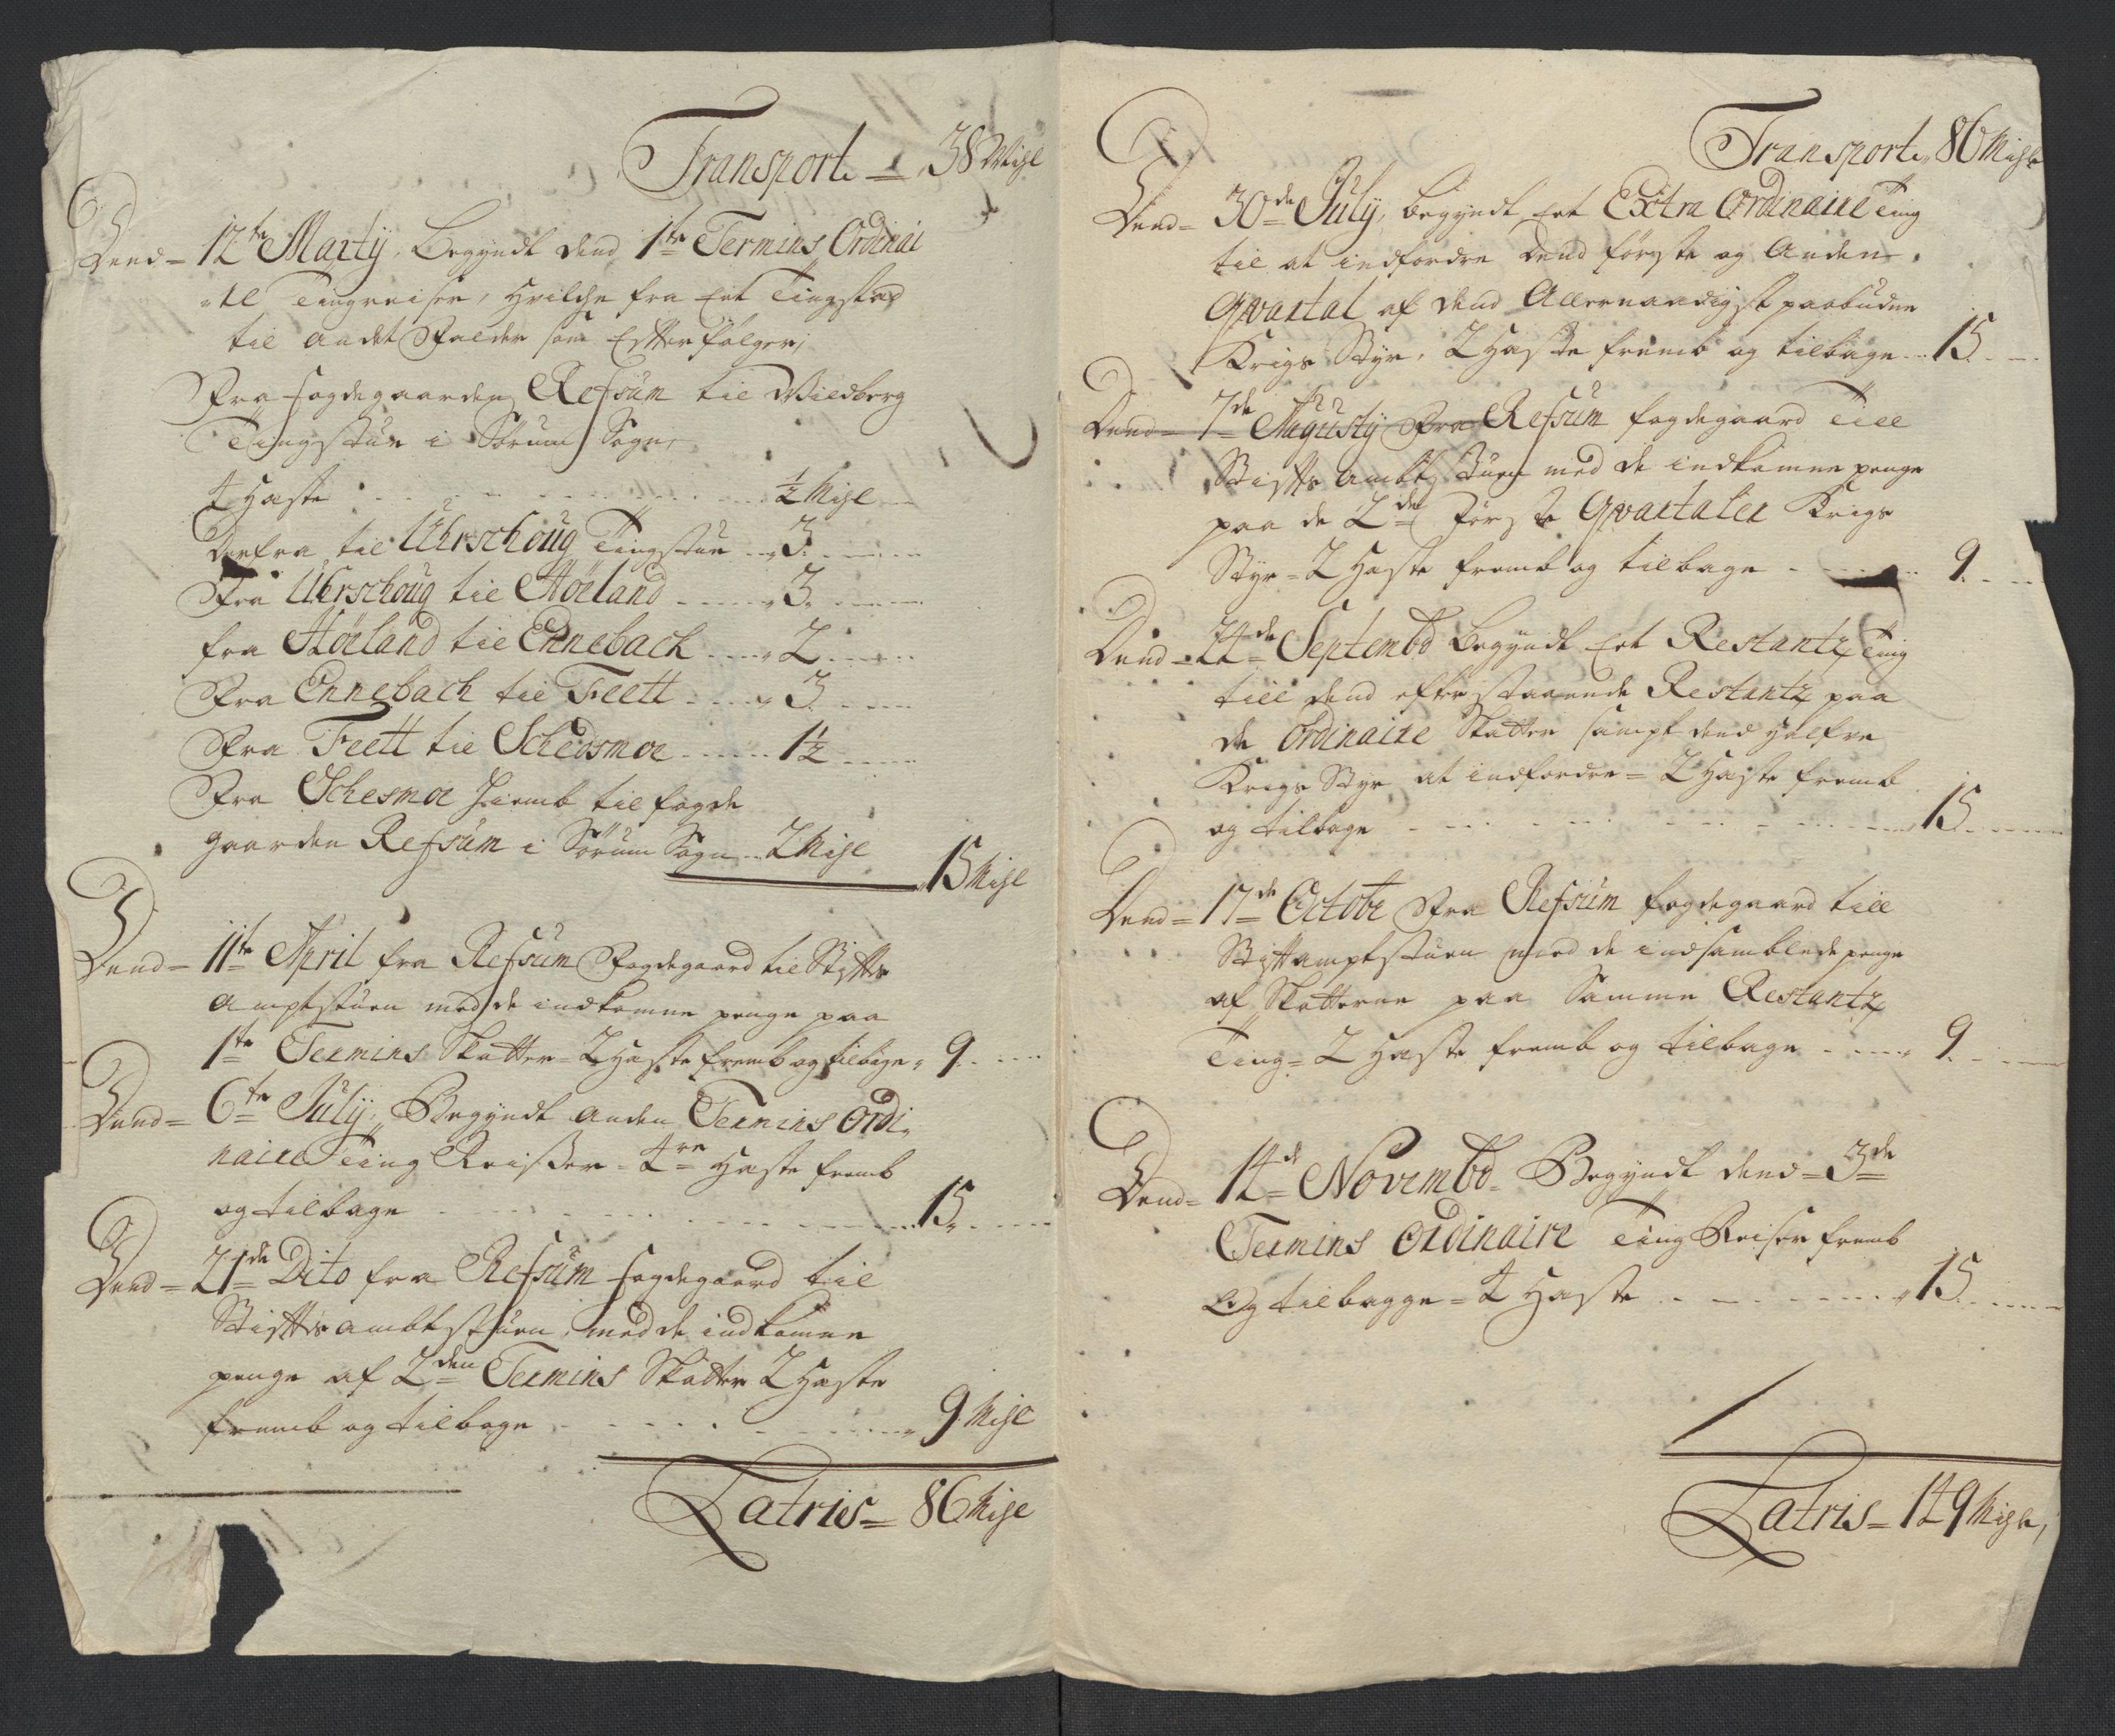 Transport = 38 Mijl
Dend = 12te Martÿ, Begyndt dend 1te Termins Ordinai
re Tingreiser, hvilche fra Eet Tingsted
til andet Falder som Efterfølger,
Fra fogdegaarden Refsum til Miedberg
Tingstue i Sørum Sogn,
4 Heste - - - ½ Mijl
Derfra til Uhrschoug Tingstue - 3
Fra Uhrschoug til Høeland - - 3
fra Høeland til Ennebach - - 2
Fra Ennebach til Feett - - 3
Fra Feett til Schedsmoe - - 1½
Fra Schesmoe hiemb til fogde
gaarden Refsum i Sørum Sogn - 2 Mijl
15 Mijl
Dend = 11te April fra Refsum Fogdegaard til Stifts
Amptstuen med de indkomne penge paa
1te Termins Skatter = 2 Heste fremb og tilbage 9
Dend = 6te Julÿ, Begyndt anden Termins Ordi-
naire Ting Reiser = 4re Heste fremb
og tilbage - - - 15
Dend = 21de Dito fra Refsum fogdegaard til
Stiftsambtstuen, med de indkomne
penge af 2den Termins Skatter 2 Heste
fremb og tilbage - - - 9 Mijl
Latris = 86 Mijl
Transport 86 Mijl
Dend = 30de Julÿ, begyndt Eet Extra Ordinaire Ting
til at indfordre dend første og Anden
Qvartal af dend Allernaadigst paabudne
Krigs Styr, 2 Heste fremb og tilbage - 15
Dend = 7de Augustÿ Fra Refsum fogdegaard Till
Stifts Ambt Stuen med de indkomne penge
paa de 2de første Qvartaler Krigs
Styr = 2 Heste fremb og tilbage - - 9
Dend = 24de Septembr Begyndt Eet Restantz Ting
till dend efterstaaende Restantz paa
de Ordinaire Skatter sampt dend halfve
Krigs Styr at indfordre = 2 Heste fremb
og tilbage - - - 15
Dend = 17de Octobr Fra Refsum fogdegaard till
Stiftamptstuen med de indsamblede penge
af Skatterne paa Samme Restantz
Ting = 2 Heste fremb og tilbage - - 9
Dend = 14de Novembr Begyndt dend = 3de
Termins Ordinaire Ting Reiser fremb
Og tilbagge = 4 Heste - - - 15
Latris = 149 Mijl,